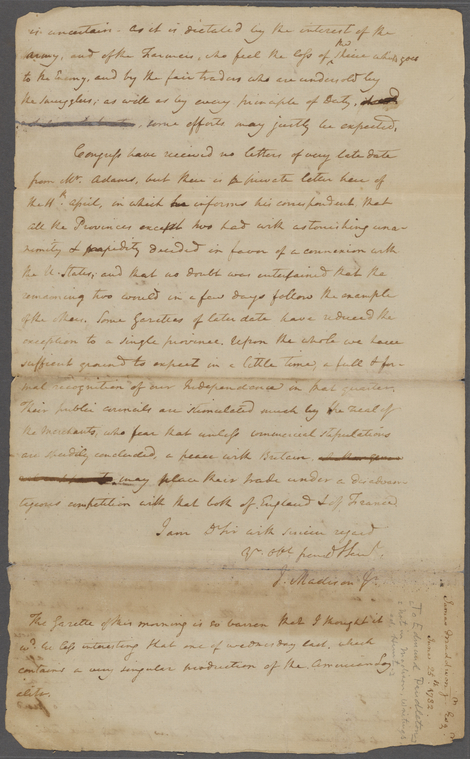 is uncertain. As it is dictated by the interest of the
army, and of the Farmers, who feel the loss of their which goes
to the Enemy, and by the fair traders who are undersold by
the smugglers; as well as by every principle of Duty,
some efforts may justly be expected.
Congress have received no letters of very late date
from Mr. Adams, but there is a private letter here of
the 11th. April, in which he informs his correspondent that
all the Provinces except two had with astonishing una-
nimity & rapidity decided in favor of a connexion with
the U. States; and that no doubt was entertained that the
remaining two would in a few days follow the example
of the others. Some Gazettes of later date have reduced the
exception to a single province. Upon the whole we have
sufficient ground to expect in a little time, a full & for-
mal recognition of our Independence in that quarter.
Their public councils are stimulated much by the zeal of
the Merchants, who fear that unless commercial stipulations
are speedily concluded, a peace with Britain
may place their trade under a disadvan-
tageous competition with that both of England & of France
I am Dr Sir with sincere regard
Yr. obt friend & Servt.
J. Madison Jr.
The Gazette of this morning is so barren that I thought it
wd. be less interesting than one of wednesday last, which
contains a very singular production of the
James Madison Jr. Esq
June 25th 1782
To Edmund Pendleton